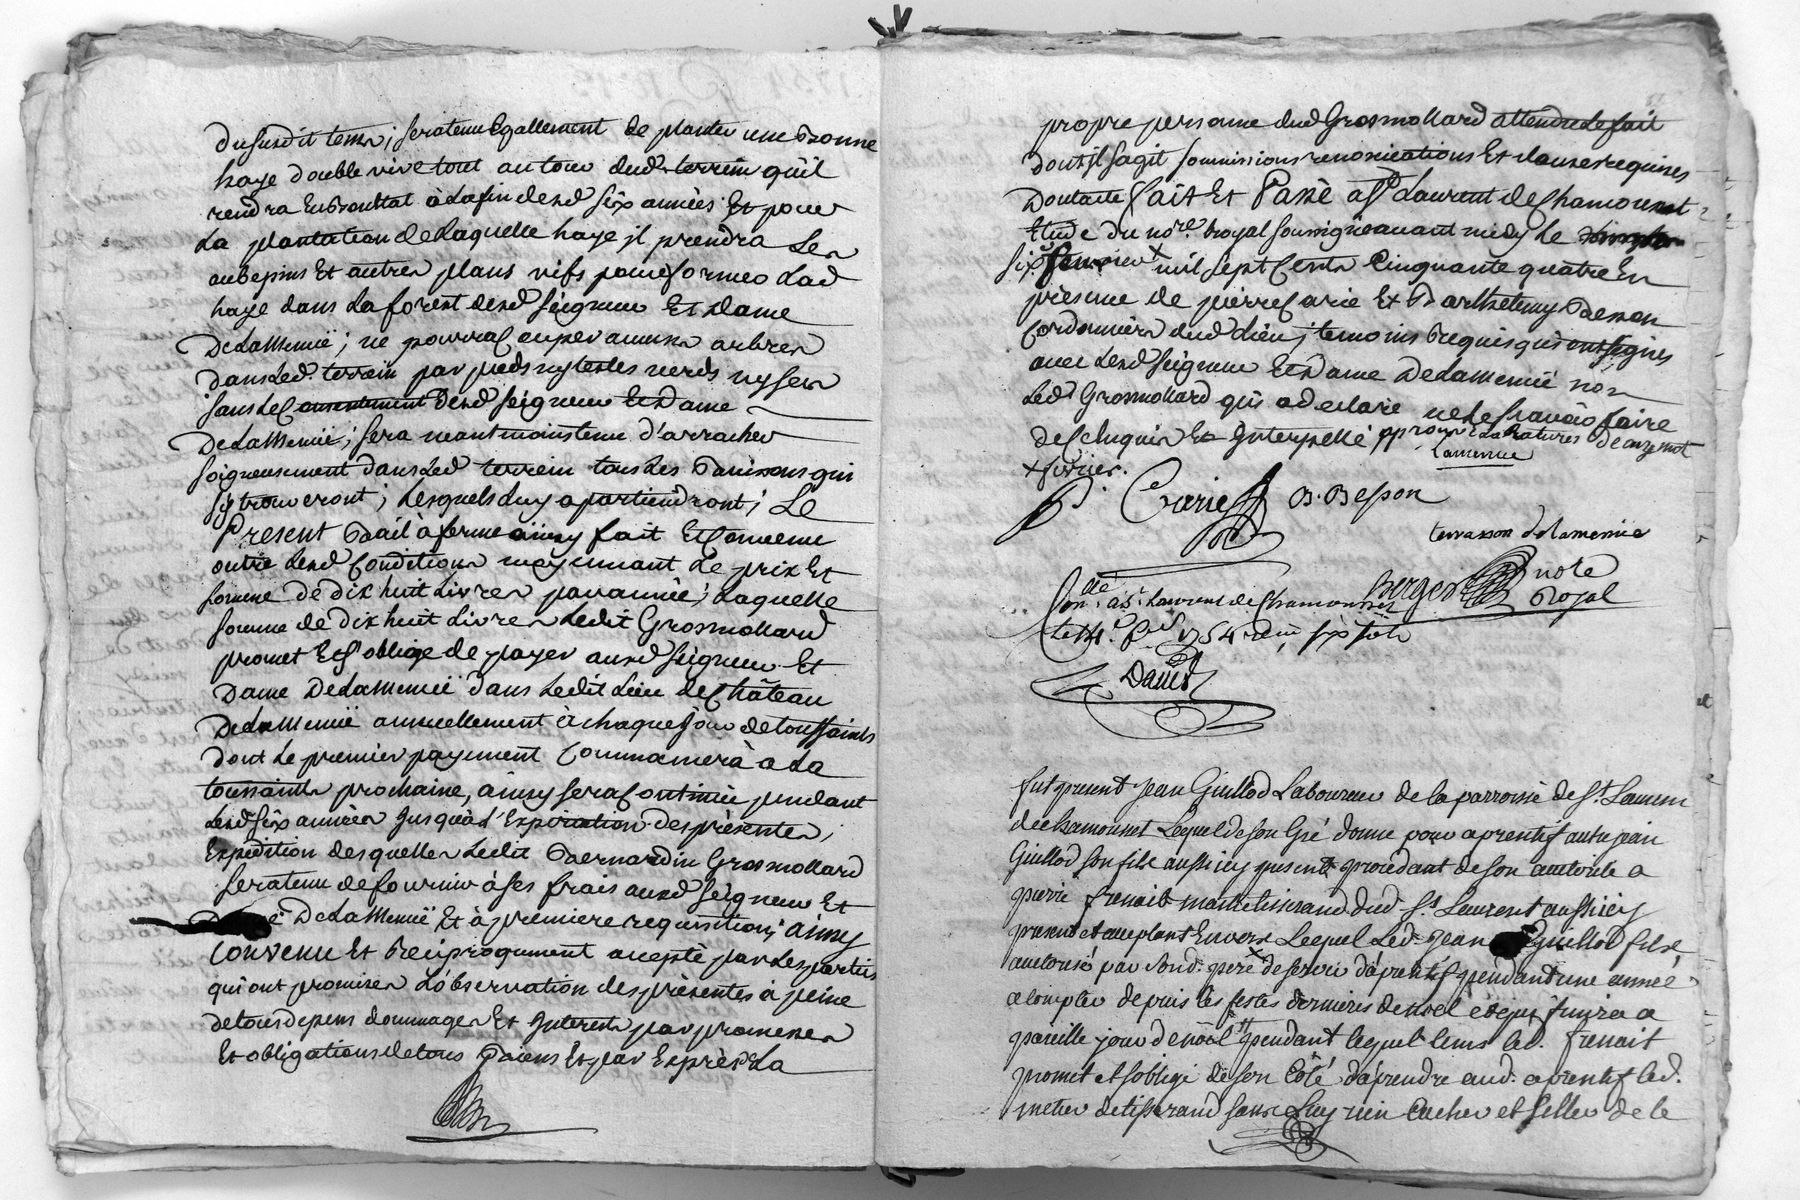 dususdit tems; sera tenu Egallement de planter une Bonne
haye double vive tout autour dud. terrein qu'il
rendra En Bon Etat à La fin desd six années Et pour
La plantation de Laquelle haye jl prendra Les
aubepins Et autres plans vifs pour former Lad
haye dans La forest desd seigneur Et Dame
DeLaMenüe; ne pourra Couper aucuns arbres
dans Led. terrein par pieds ny testes verds ny secs
sans Le Consentement Desd seigneur Et Dame
DeLaMenüe; sera neantmoins tenu d'arracher
soigneusement dans Led terrein tous Les Buissons qui
sy trouveront; Lesquels Luy apartiendront; Le
Present Bail à ferme ainsy fait Et Convenu
outre Lesd Conditions moyennant Le prix Et
somme de dix huit Livres par année; Laquelle
somme de dix huit Livres Ledit Grosmollard
promet Et S'oblige de payer ausd seigneur Et
Dame DeLaMenüe dans Ledit Lieu de Château
DeLaMenüe annuellement à chaque jour de toussaints
dont Le premier payement Commancera à La
toussaints prochaine, ainsy sera Continüé pendant
Lesd six années Jusqu'à L'Expiration des presentes,
Expedition desquelles Ledit Bernardin Grosmollard
sera tenu de fournir à ses frais ausd seigneur Et
DeLaMenüe Et à premiere requisition; ainsy
Convenu Et Reciproquement accepté par Les parties
qui ont promises L'observation des presentes à peine
de tous depens dommages Et Interests par promesses
Et obligations de tous Biens Et par Exprès La
propre personne dud Grosmollard attendu le fait
dont jl sagit soumissions renonciations Et clauses requises
Dont acte fait Et Passé a St Laurent de Chamousset
Etude du nore. Royal soussigné avant midy Le
six + mil sept Cents Cinquante quatre En
presence de pierre Carie Et Barthelemy Besson
Cordonniers dud Lieu; temoins Requis qui ont signés
avec Lesd seigneur Et Dame DeLaMenüe non
Led Grosmollard qui a declaré ne Le sçavoir faire
de Ce Enquis Et Interpellé approuvé La Rature De onze mot
+ fevrier.
Lamenue
P. Carie B. Besson
terrasson de lamenue
Berger note
Royal
Conlé. a St. Laurent de Chamousset
Le 14. 1754 six sols
David
fut present Jean Guillod Laboureur de la parroisse de St. Laurent
de chamousset Lequel de son Gré donne pour aprentif autre jean
Guillod son fils aussi icy present procedant de son autorité a
pierre frenait maitre tisserand dud St Laurent aussi icy
present et acceptant Envers Lequel Led. Jean Guillod fils,
autorisé par sond. pere de servir d'aprentif pendant une année
a compter depuis les festes dernieres de noel et qui finira a
pareille jour de noel pendant lequel tems led. frenait
promet et soblige de son Côté d'aprendre aud. aprentif led.
metier de tisserand sans Luy rien Cacher et seller de le